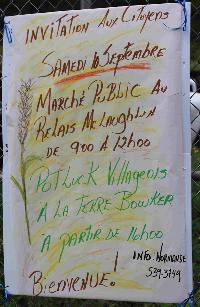 INVITATION AUX CITOYENS
SAMEDI 16 SEPTEMBRE
MARCHÉ PUBLIC AU
RELAIS MCLAUGHLIN
DE 9:00 À 12H00
POTLUCK VILLAGEOIS
À LA TERRE BOWKER
À PARTIR DE 16H00
INFO: NORMANDE
BIENVENUE!